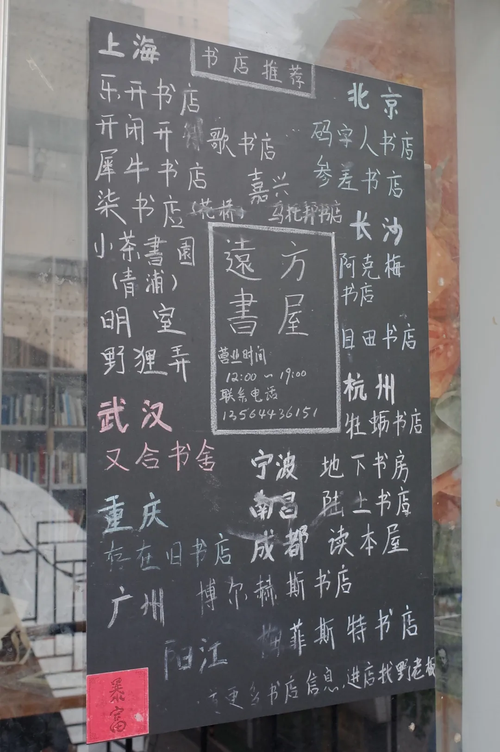 书店推荐
上海
乐开书店
开闭开
歌书店
犀牛书店
柒书店
(花桥)
小茶書園
(青浦)
明室
野狸弄
武汉
又合书舍
重庆
存在旧书店
广州
博尔赫斯书店
阳江
梅菲斯特书店
嘉兴
乌托邦书店
遠方
書屋
营业时间
12:00~19:00
联系电话
13564436151
北京
码字人书店
参差书店
长沙
阿克梅
书店
目田书店
杭州
牡蛎书店
宁波
地下书房
南昌
陆上书店
成都
读本屋
更多书店信息,进店找野老板
暴富